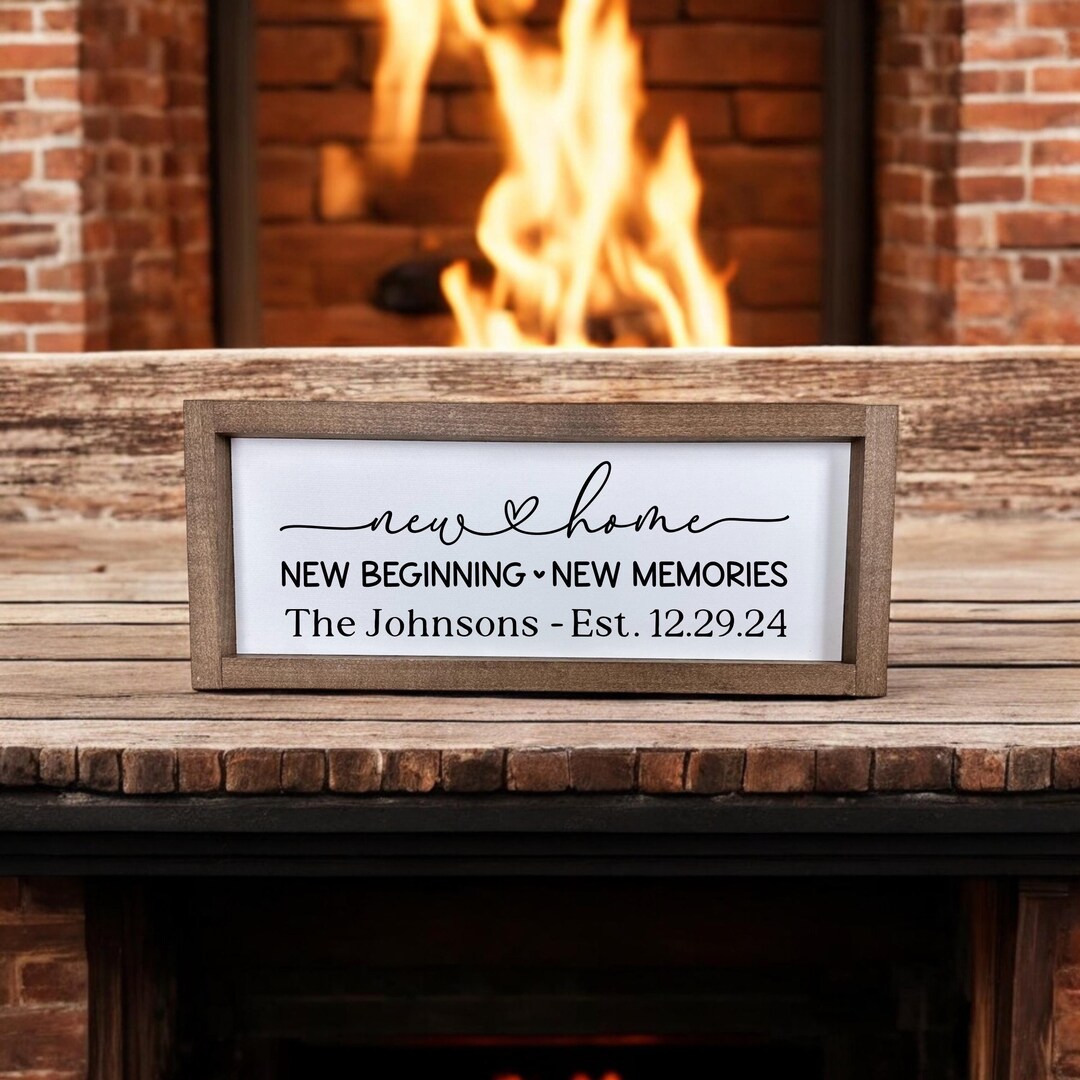 new home
NEW BEGINNING NEW MEMORIES
The Johnsons - Est. 12.29.24